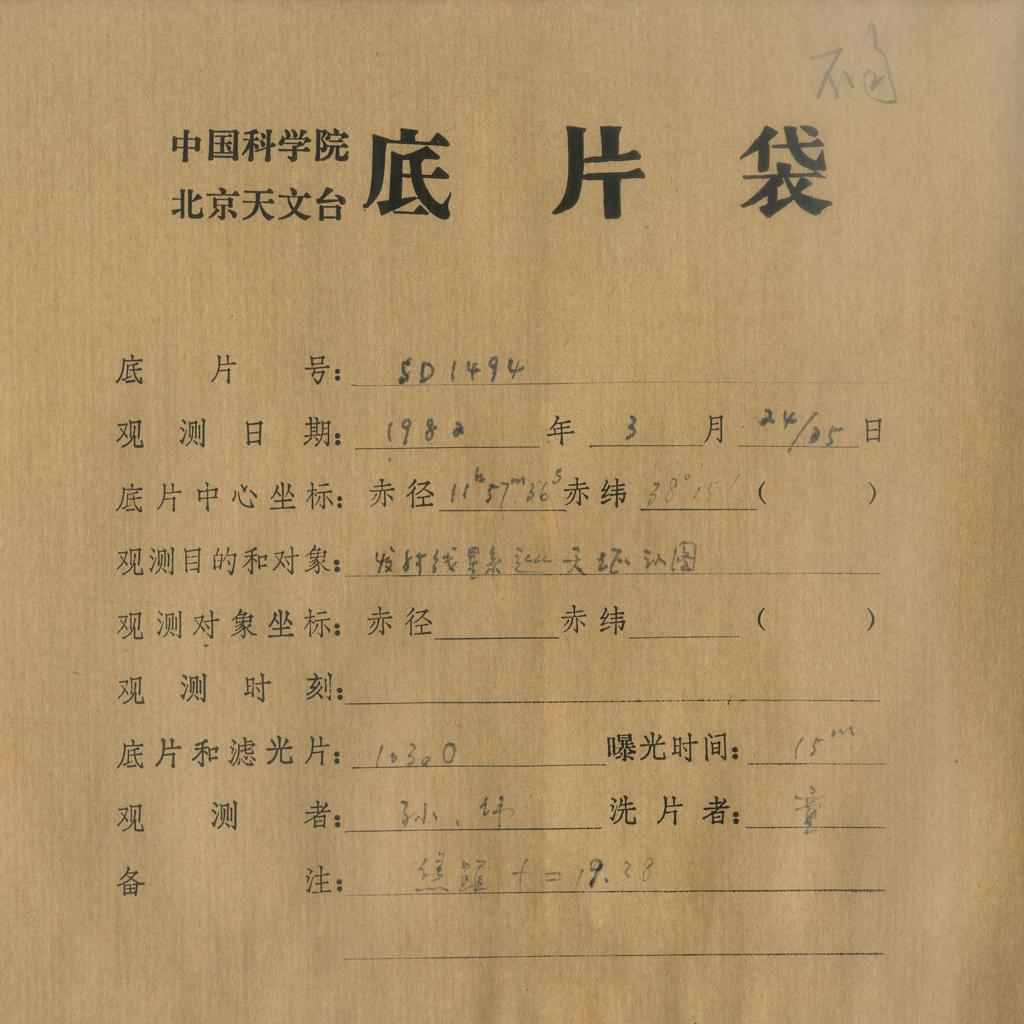 中国科学院
北京天文台
底片袋
底片号: SD1494
观测日期: 1982 年 3 月 24/25 日
底片中心坐标: 赤径 11h57m36s 赤纬 38°15′ ( )
观测目的和对象: 发射线星系 天 认图
观测对象坐标: 赤径 赤纬 ( )
观测时刻:
底片和滤光片: 103aO 曝光时间: 15m
观测者: 孙、 洗片者: 童
备注: 焦距 f = 19.38